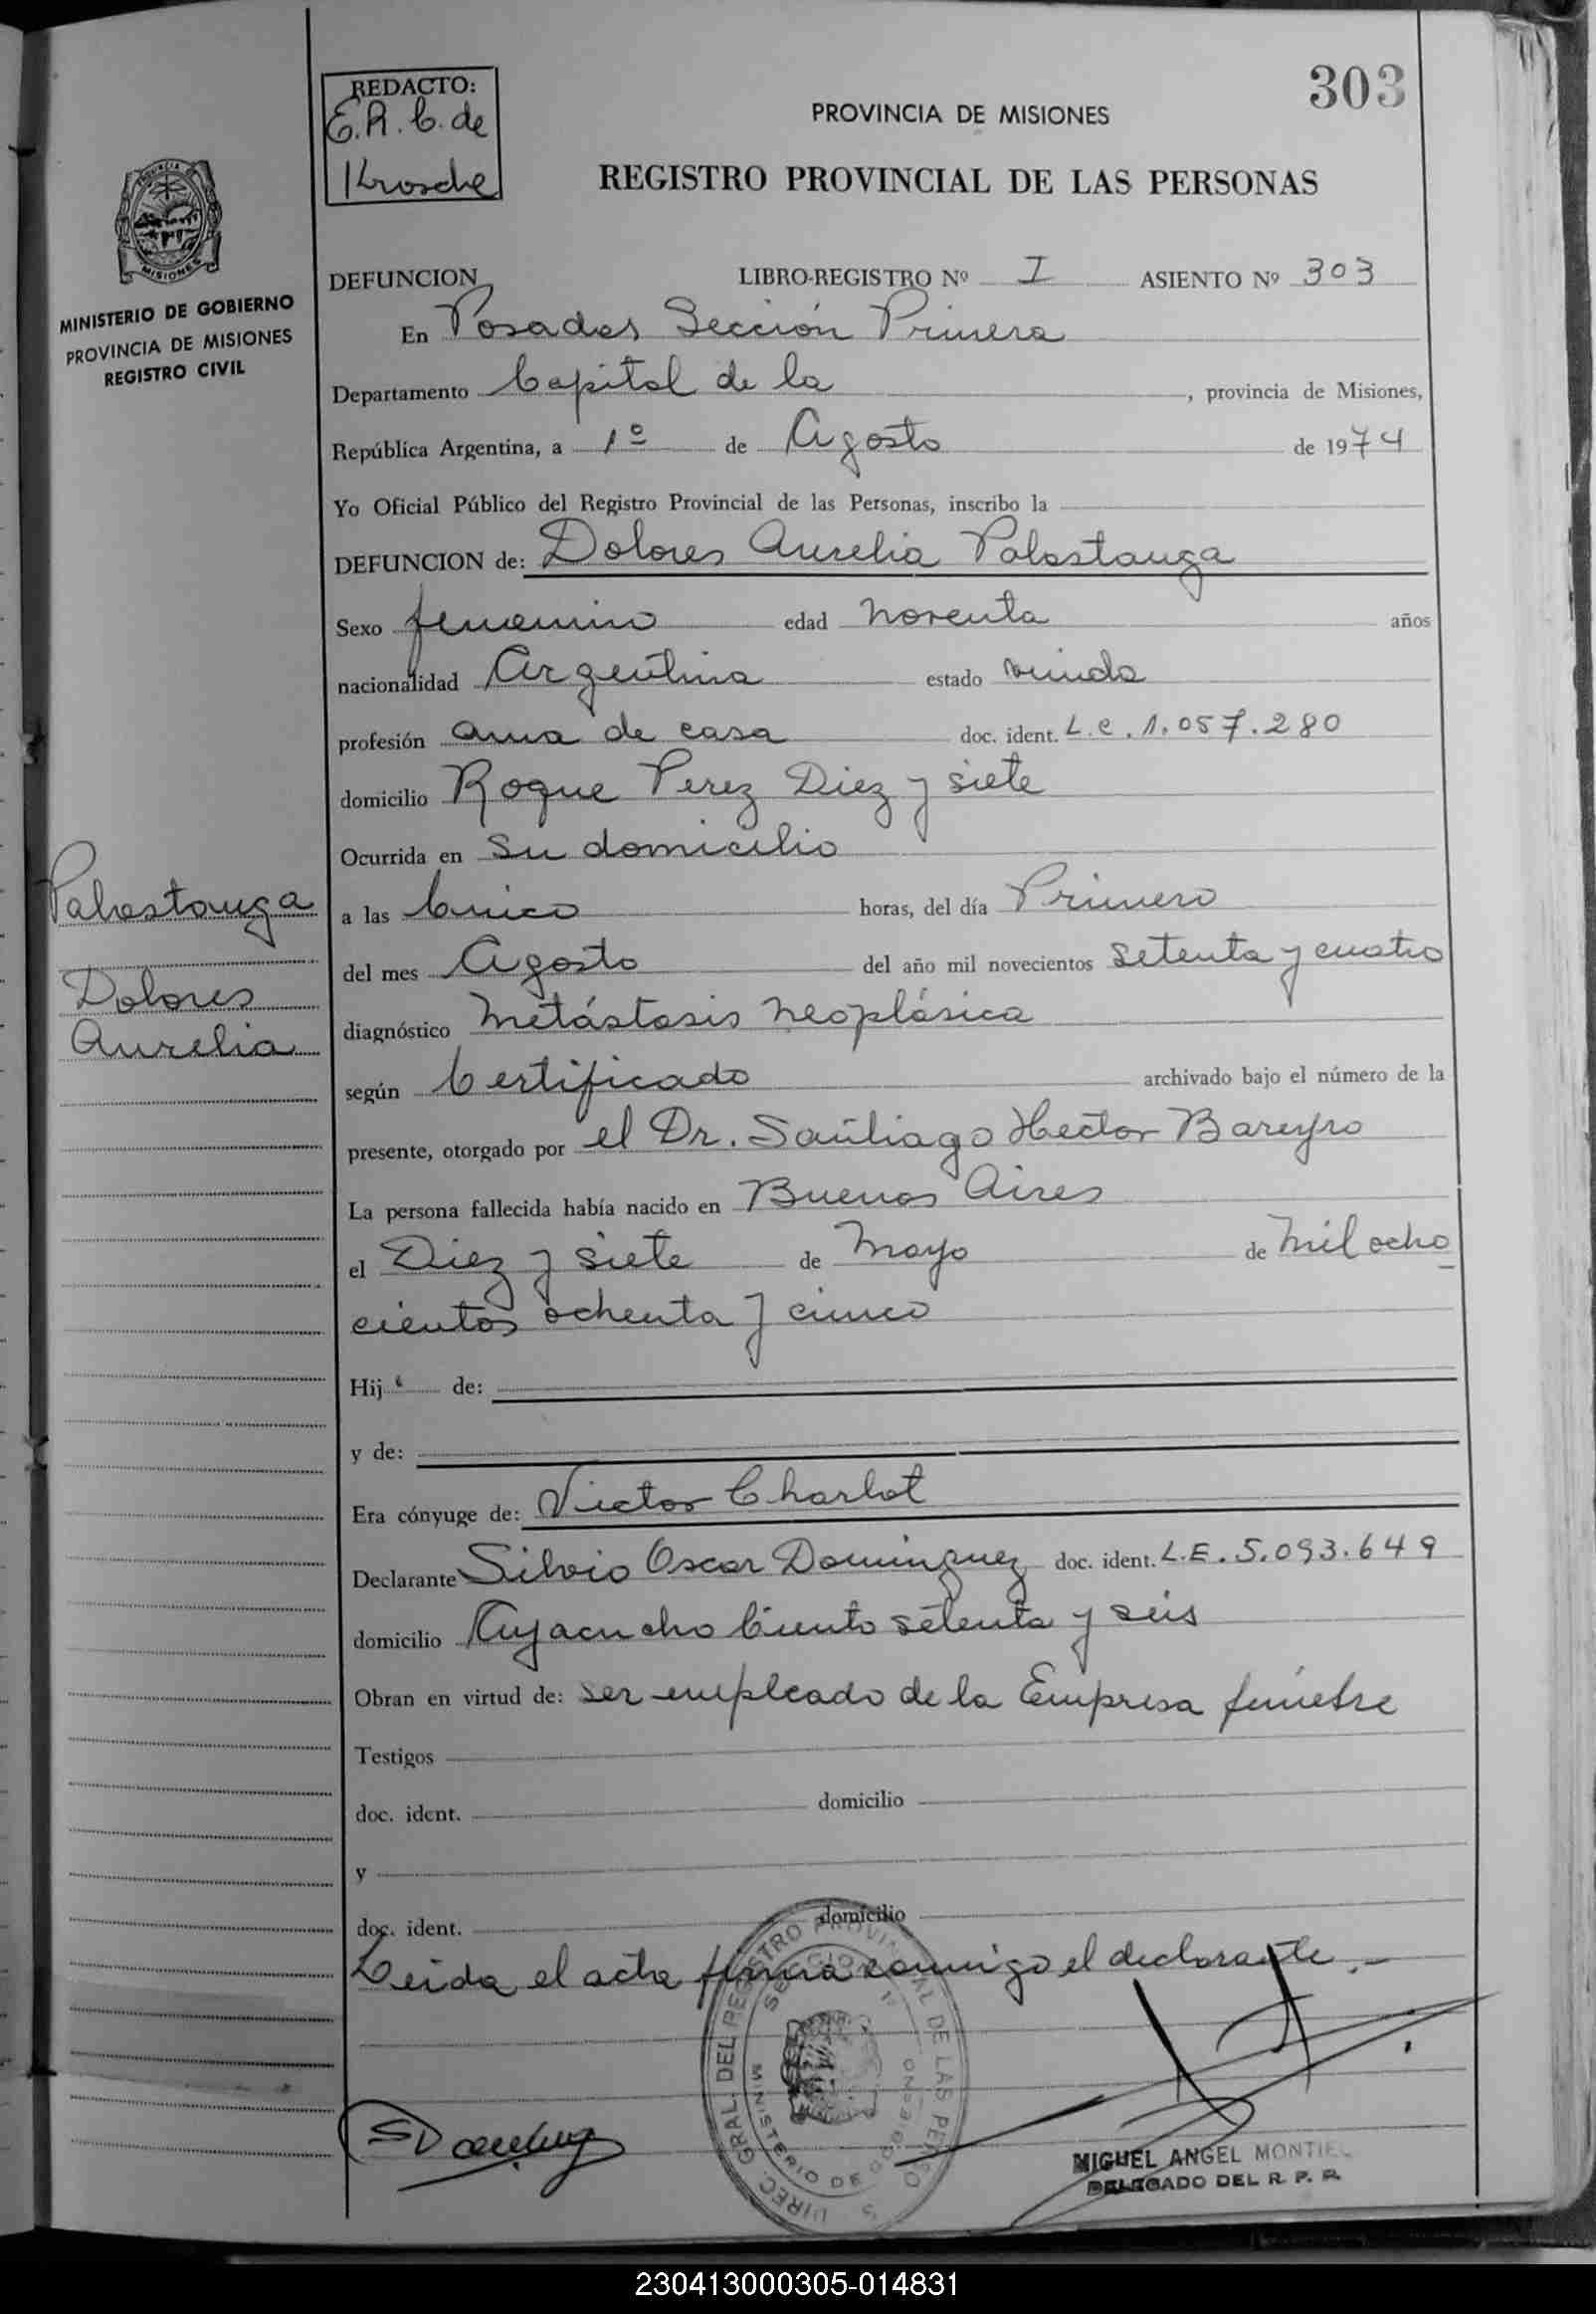 303
REDACTO:
E.R.C. de
Krosche
PROVINCIA DE MISIONES
REGISTRO PROVINCIAL DE LAS PERSONAS
PROVINCIA
MISIONES
MINISTERIO DE GOBIERNO
PROVINCIA DE MISIONES
REGISTRO CIVIL
DEFUNCION LIBRO-REGISTRO Nº I ASIENTO Nº 303
En Posadas Sección Primera
Departamento Capital de la , provincia de Misiones,
República Argentina, a 1º de Agosto de 1974
Yo Oficial Público del Registro Provincial de las Personas, inscribo la
DEFUNCION de: Dolores Aurelia Palastanga
Sexo femenino edad noventa años
nacionalidad Argentina estado viuda
profesión ama de casa doc. ident. L.C. 1.057.280
domicilio Roque Perez Diez y siete
Ocurrida en su domicilio
Palastanga
Dolores
Aurelia
a las Cinco horas, del día Primero
del mes Agosto del año mil novecientos setenta y cuatro
diagnóstico Metástasis neoplásica
según Certificado archivado bajo el número de la
presente, otorgado por el Dr. Santiago Hector Bareyro
La persona fallecida había nacido en Buenos Aires
el Diez y siete de Mayo de mil ocho
cientos ochenta y cinco
Hij de:
y de:
Era cónyuge de: Victor Charlot
Declarante Silvio Oscar Dominguez doc. ident. L.E. 5.093.649
domicilio Ayacucho Ciento setenta y seis
Obran en virtud de: ser empleado de la Empresa fúnebre
Testigos
doc. ident. domicilio
y
doc. ident. domicilio
Leida el acta firma conmigo el declarante.-
DIREC. GRAL. DEL REGISTRO PROVINCIAL DE LAS PERSO S
SECCION 1ª
MINISTERIO DE GOBIERNO
MIGUEL ANGEL MONTIEL
DELEGADO DEL R. P. P.
230413000305-014831